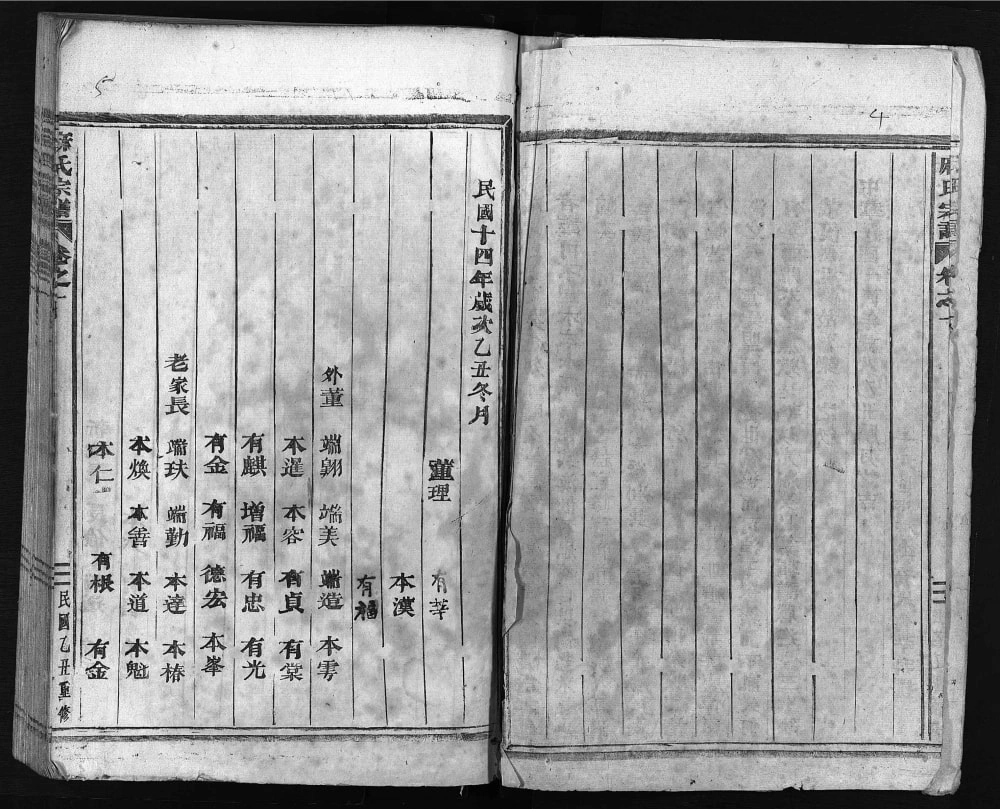 4
氏宗譜 卷之
民國十四年歲次乙丑冬月
董理 有莘
本漢
有福
外董 端翊 端美 端造 本雩
本暹 本容 有貞 有棠
有麒 增福 有忠 有光
有金 有福 德宏 本峯
老家長 端玞 端勤 本達 本椿
本煥 本善 本道 本魁
本仁 有根 有金
氏宗譜 卷之
二
民國乙丑重修
5